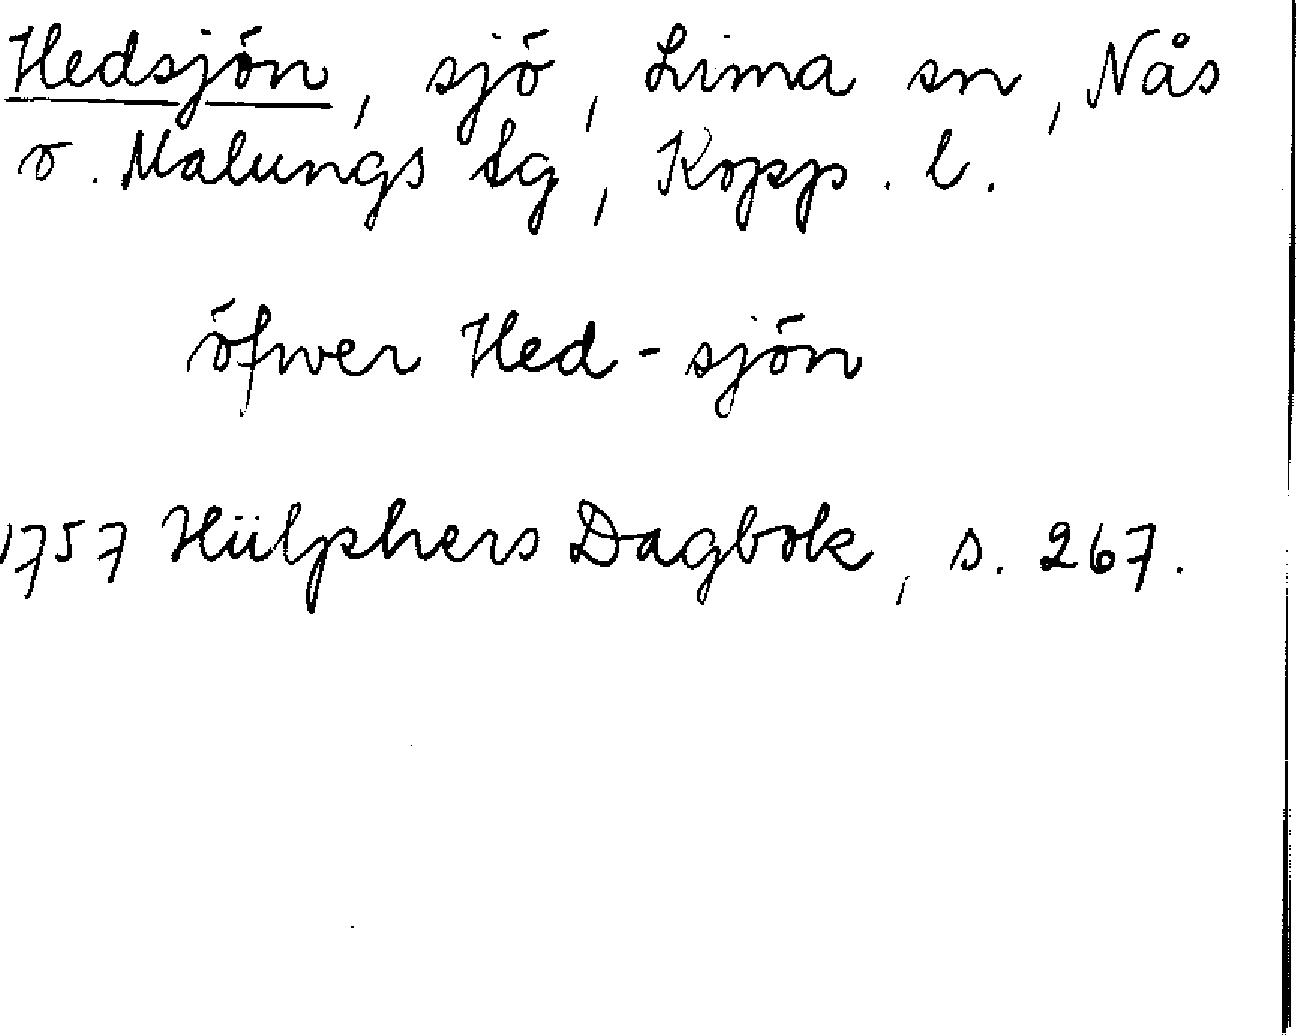 Hedsjön, sjö, Lima sn, Nås
o. Malungs tg, Kopp. l.
öfwer Hed-sjön
1757 Hülphers Dagbok, s. 267.